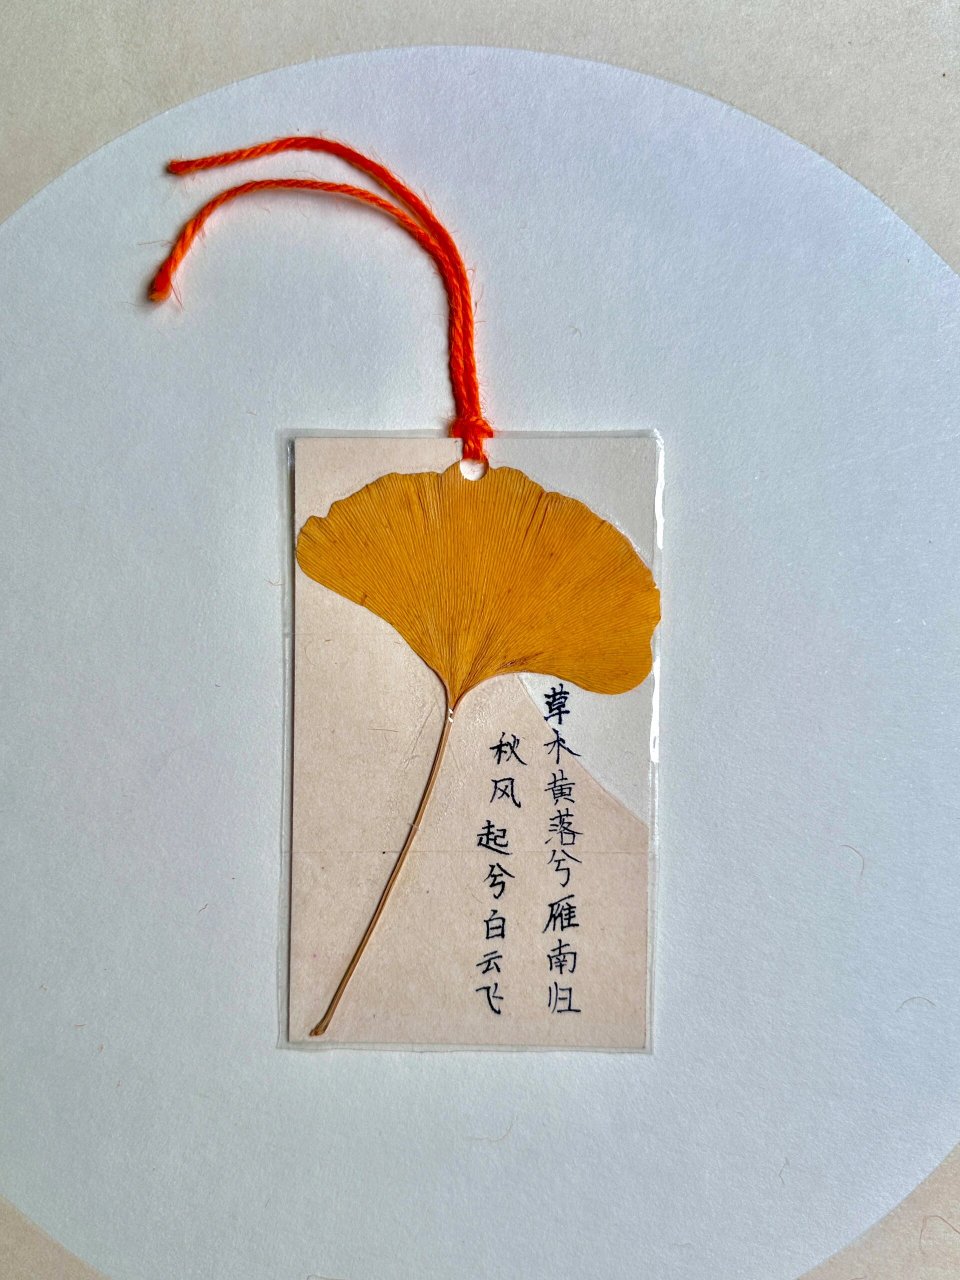 秋风起兮白云飞
草木黄落兮雁南归